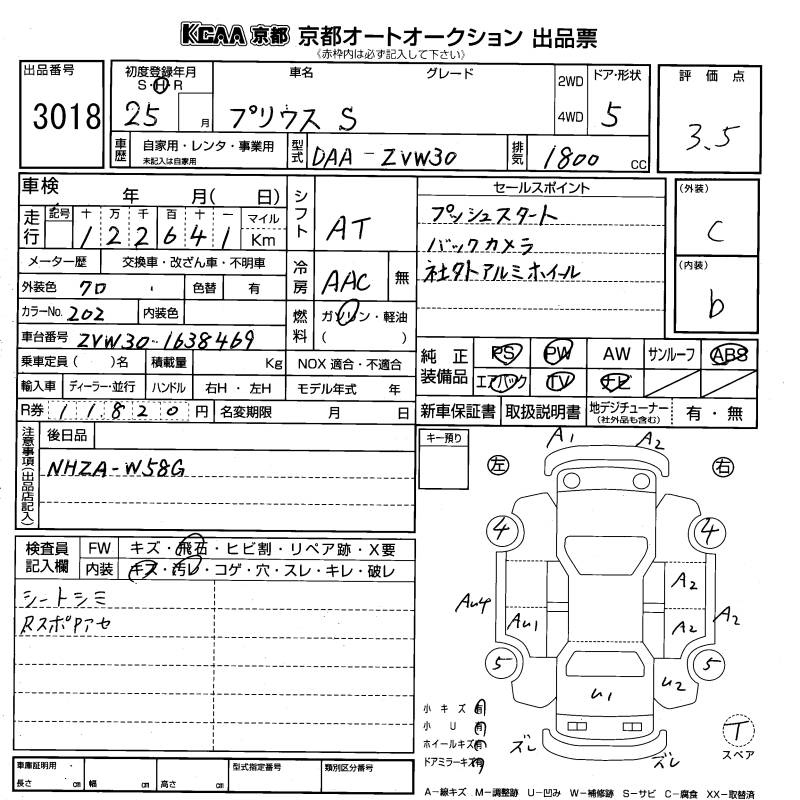 KCAA 京都 京都オートオークション 出品票
《赤枠内は必ず記入して下さい》
出品番号 3018
初度登録年月 S・H・R 25 月
車名 グレード プリウス S
2WD 4WD
ドア・形状 5
評価点 3.5
車歴 自家用・レンタ・事業用 未記入は自家用
型式 DAA-ZVW30
排気 1800 CC
車検 年 月( 日)
走行 記号 十 万 千 百 十 一 マイル Km
122641
メーター歴 交換車・改ざん車・不明車
外装色 クロ 色替 有
カラーNo. 202 内装色
車台番号 ZVW30-1638469
乗車定員 ( )名 積載量 Kg NOX 適合・不適合
輸入車 ディーラー・並行 ハンドル 右H・左H モデル年式 年
R券 11820 円 名変期限 月 日
シフト AT
冷房 AAC 無
燃料 ガソリン・軽油 ( )
セールスポイント
プッシュスタート
バックカメラ
社外アルミホイール
(外装) C
(内装) b
純正装備品 PS PW AW サンルーフ ABS
エアバック TV ナビ
新車保証書 取扱説明書 地デジチューナー (社外品も含む) 有・無
注意事項(出品店記入)
後日品
NHZA-W58G
キー預り
検査員記入欄
FW キズ・飛石・ヒビ割・リペア跡・X要
内装 キズ・汚レ・コゲ・穴・スレ・キレ・破レ
シートシミ
RスポPアセ
左 右
A1 A2
4 4
A2
Au4 Au1 A2 A2
5 5
u1 u2
ズレ ズレ
小キズ 有
小U 有
ホイールキズ 有
ドアミラーキズ 有
T スペア
車庫証明用
長さ cm 幅 cm 高さ cm
型式指定番号 類別区分番号
A-線キズ M-調整跡 U-凹み W-補修跡 S-サビ C-腐食 XX-取替済